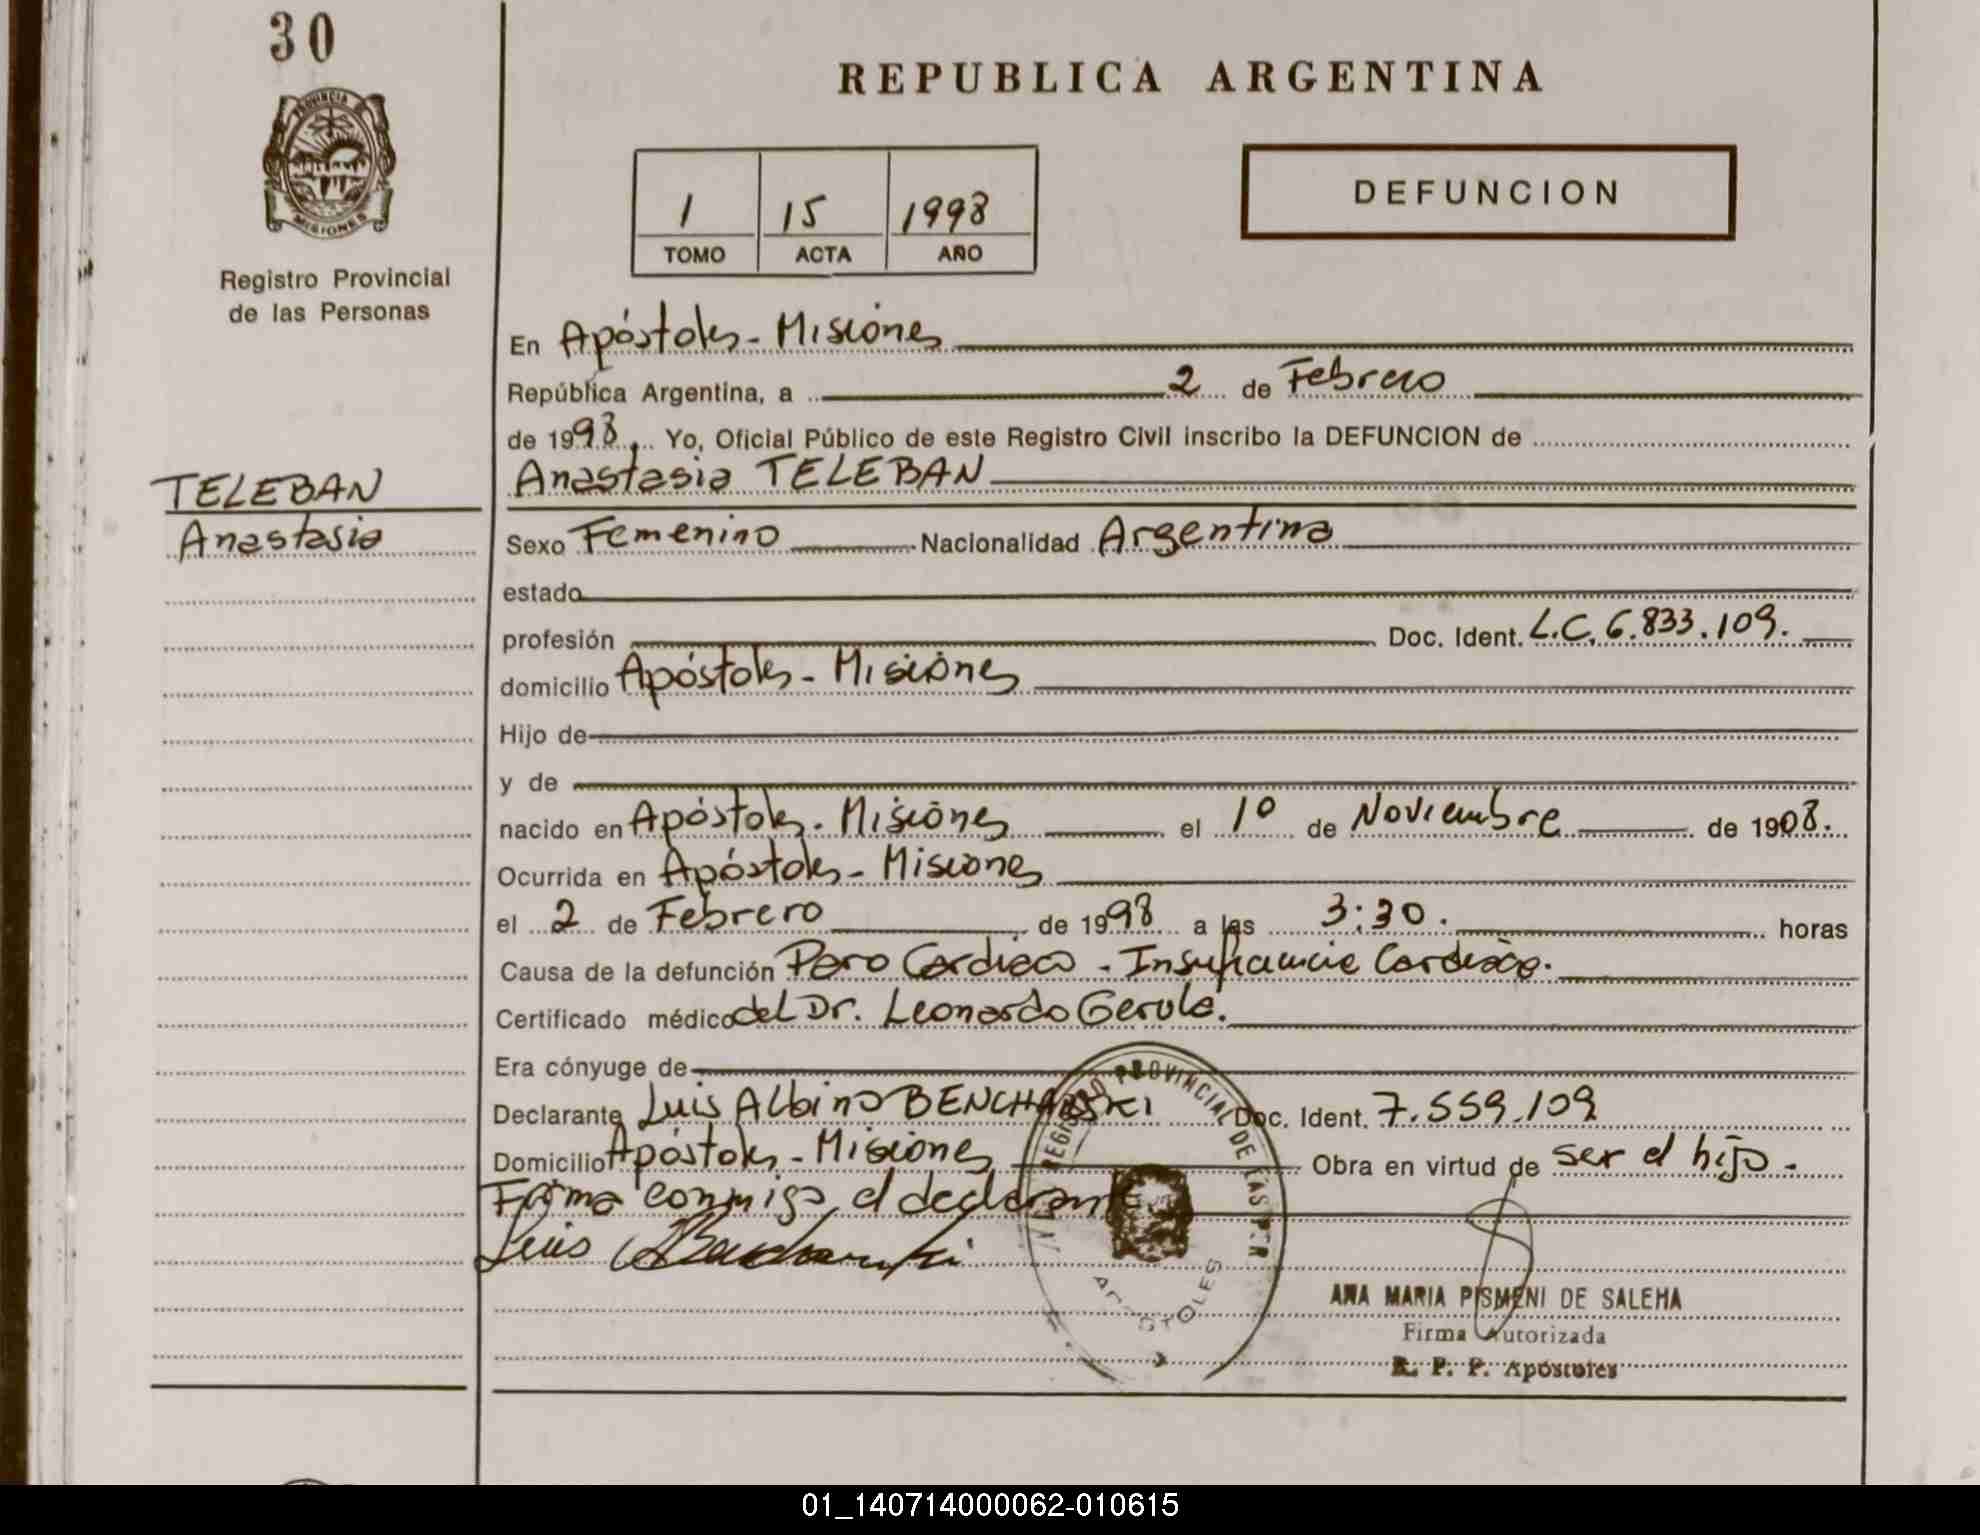 30
REPUBLICA ARGENTINA
PROVINCIA DE
MISIONES
Registro Provincial
de las Personas
1 15 1998
TOMO ACTA AÑO
DEFUNCION
En Apóstoles - Misiones
República Argentina, a 2 de Febrero
de 1998 Yo, Oficial Público de este Registro Civil inscribo la DEFUNCION de
TELEBAN
Anastasia
Anastasia TELEBAN
Sexo Femenino Nacionalidad Argentina
estado
profesión Doc. Ident. L.C. 6.833.109.
domicilio Apóstoles - Misiones
Hijo de
y de
nacido en Apóstoles - Misiones el 1º de Noviembre de 1908.
Ocurrida en Apóstoles - Misiones
el 2 de Febrero de 1998 a las 3:30. horas
Causa de la defunción Paro Cardiaco - Insuficiencia Cardiaca.
Certificado médico del Dr. Leonardo Gerula.
Era cónyuge de
Declarante Luis Albino BENCHARSKI Doc. Ident. 7.559.109
Domicilio Apóstoles - Misiones Obra en virtud de ser el hijo.
Firma conmigo el declarante
Luis
REGISTRO PROVINCIAL DE LAS PER
APOSTOLES
ANA MARIA PISMENI DE SALEHA
Firma Autorizada
R. P. P. Apóstoles
01_140714000062-010615